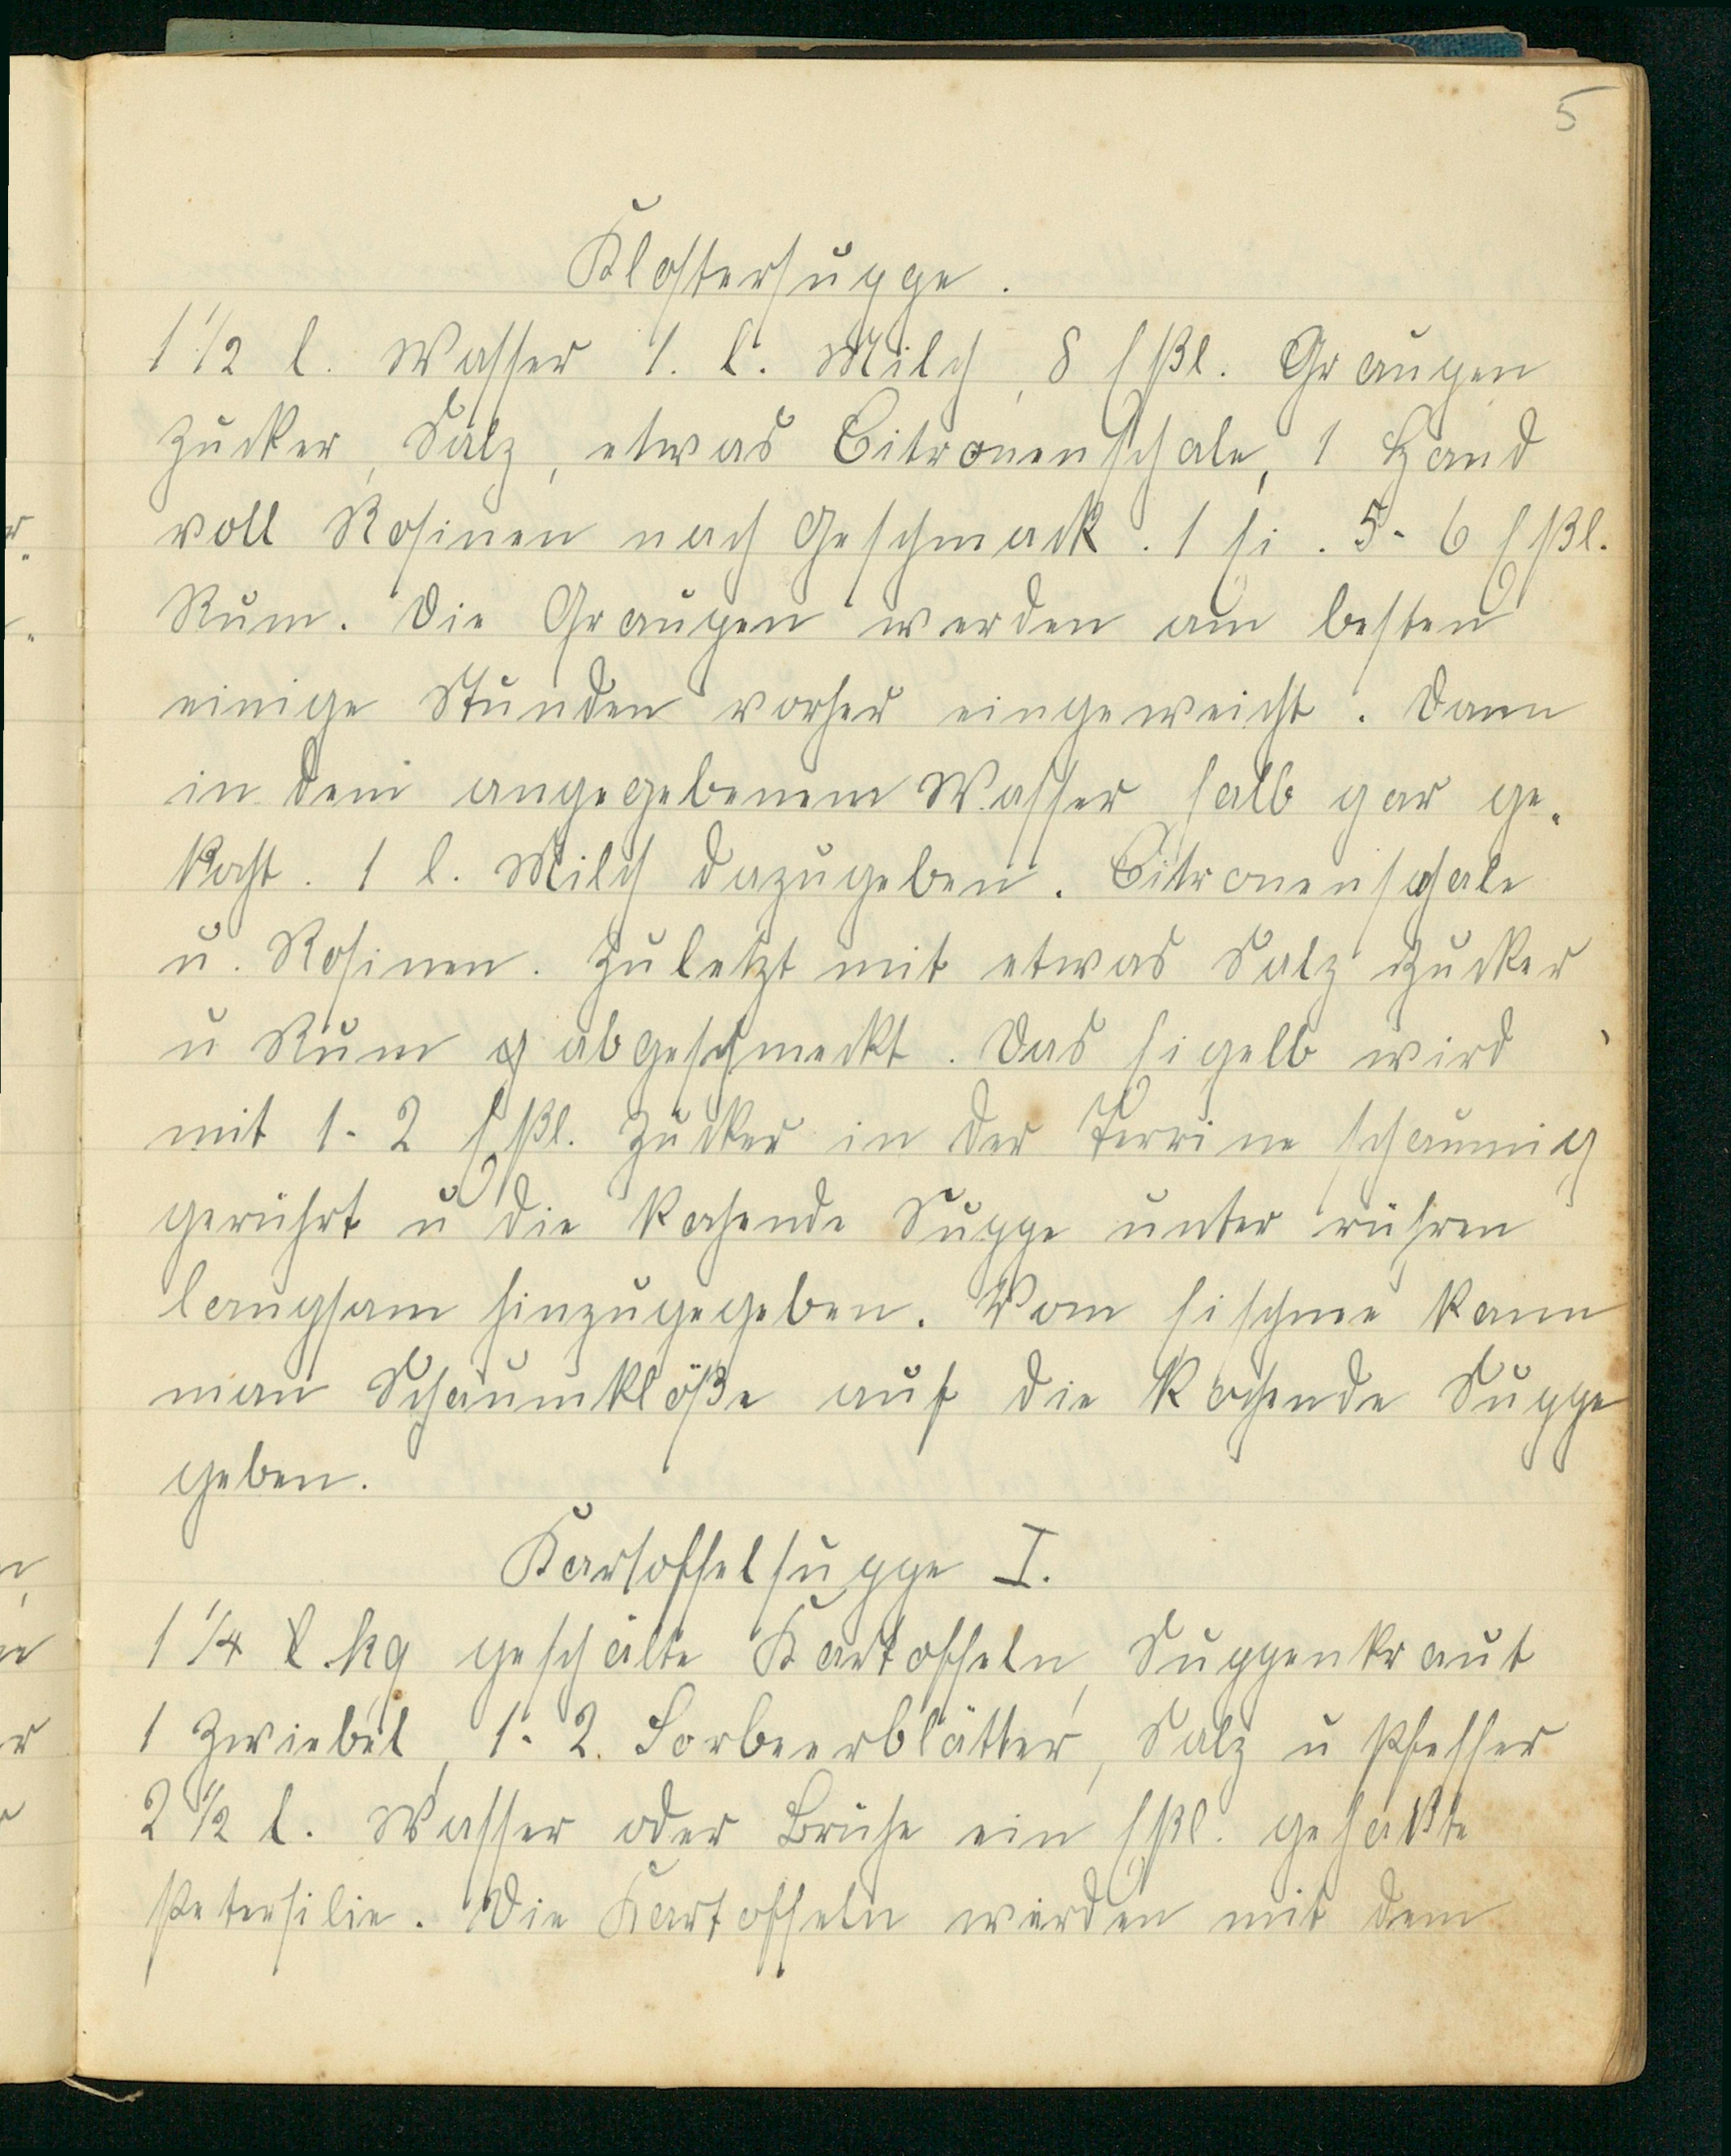 5
Klostersuppe.
1 1/2 l. Wasser 1. l. Milch, 8 Eßl. Graupen
Zucker, Salz, etwas Citronenschale, 1 Hand
voll Rosinen nach Geschmack. 1 Ei. 5-6 Eßl.
Rum. Die Graupen werden am besten
einige Stunden vorher eingeweicht. Dann
in dem angegebenem Wasser halb gar ge-
kocht. 1 l. Milch dazugeben. Citronenschale
u. Rosinen. Zuletzt mit etwas Salz Zucker
u Rum abgeschmeckt. Das Eigelb wird
mit 1-2 Eßl. Zucker in der Terrine schaumig
gerührt u die kochende Suppe unter rühren
langsam hinzugegeben. Vom Eischnee kann
man Schaumklöße auf die kochende Suppe
geben.
Kartoffelsuppe I.
1 1/4 kg geschälte Kartoffeln, Suppenkraut
1 Zwiebel, 1-2. Lorbeerblätter, Salz u Pfeffer
2 1/2 l. Wasser oder Brühe ein Eßl.
Petersilie. Die Kartoffeln werden mit dem